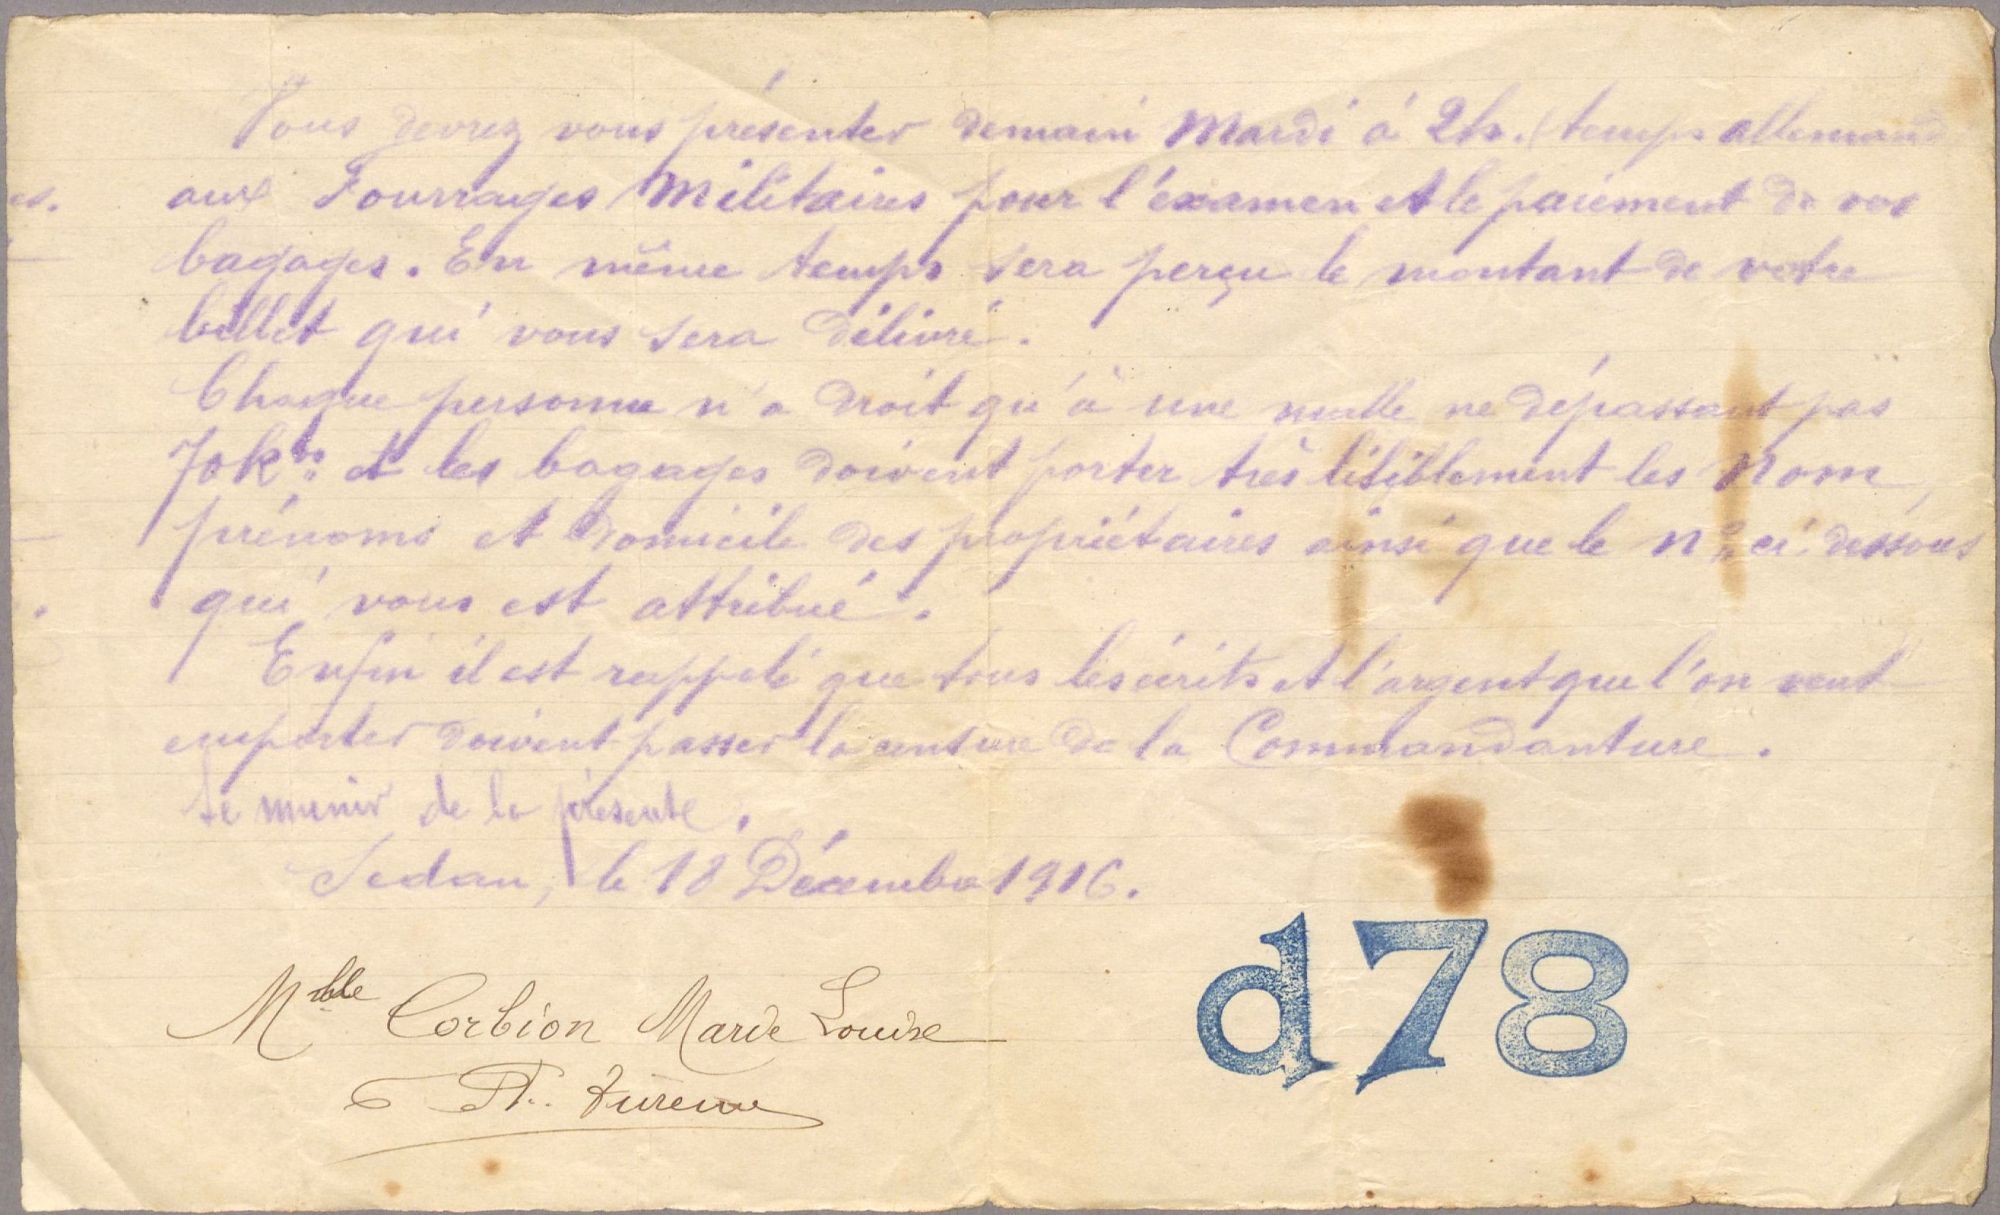 Vous devrez vous présenter demain Mardi à 2h. (temps allemand
aux Fourrages Militaires pour l'éxamen et le paiement de vos
bagages. En même temps sera perçu le montant de votre
billet qui vous sera délivré.
Chaque personne n'a droit qu'à une malle ne dépassant pas
70k os et les bagages doivent porter très lisiblement les nom,
prénoms et domicile des propriétaires ainsi que le n° ci-dessous
qui vous est attribué.
Enfin il est rappelé que tous les écrits et l'argent que l'on veut
emporter doivent passer la censure de la Commandanture.
Se munir de la présente.
Sedan, le 18 Décembre 1916.
Melle Corbion Marie Louise
6 Pl. Turenne
d78